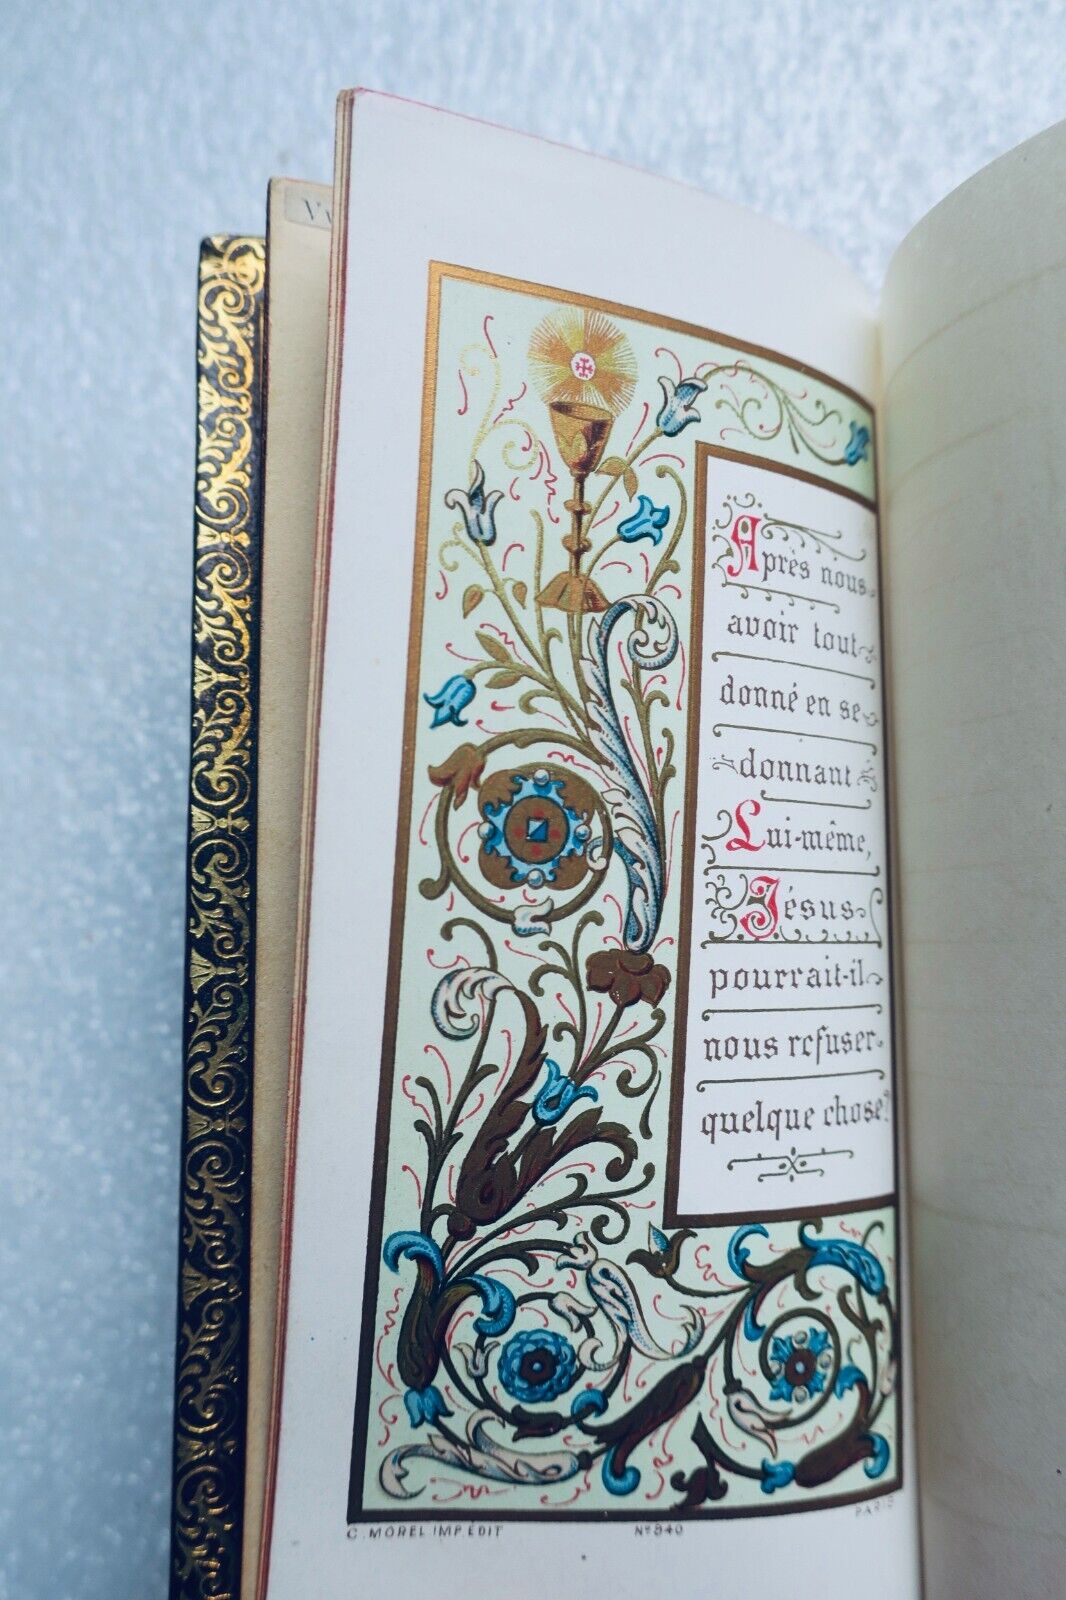 Après nous
avoir tout
donné en se
donnant
Lui-même,
Jésus
pourrait-il
nous refuser
quelque chose?
C. MOREL IMP. EDIT
PARIS